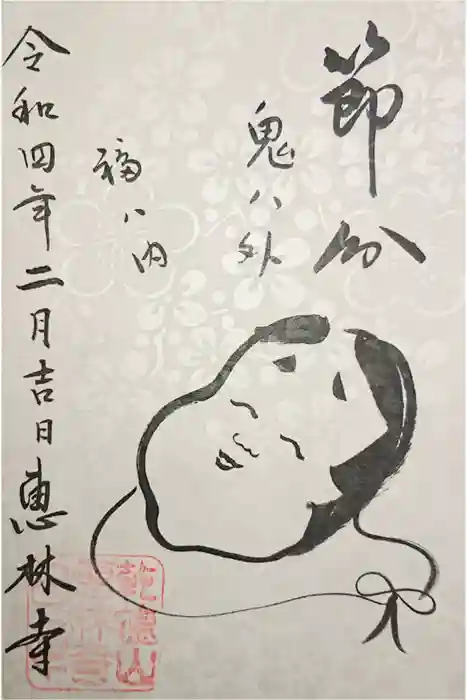 節分
鬼ハ外
福ハ内
令和四年二月吉日恵林寺
乾徳山